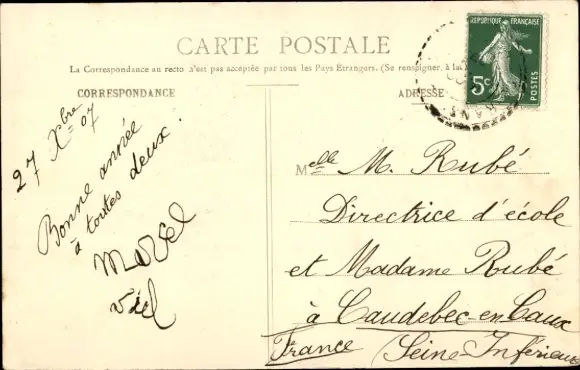 CARTE POSTALE
La Correspondance au recto n'est pas acceptée par tous les Pays Étrangers. (Se renseigner, à la
CORRESPONDANCE
ADRESSE
RÉPUBLIQUE FRANÇAISE
5c
POSTES
27 Xbre 07
Bonne année
à toutes deux!
Viel
Mlle M. Rubé
Directrice d'école
et Madame Rubé
à Caudebec-en-Caux
France (Seine-Inférieure